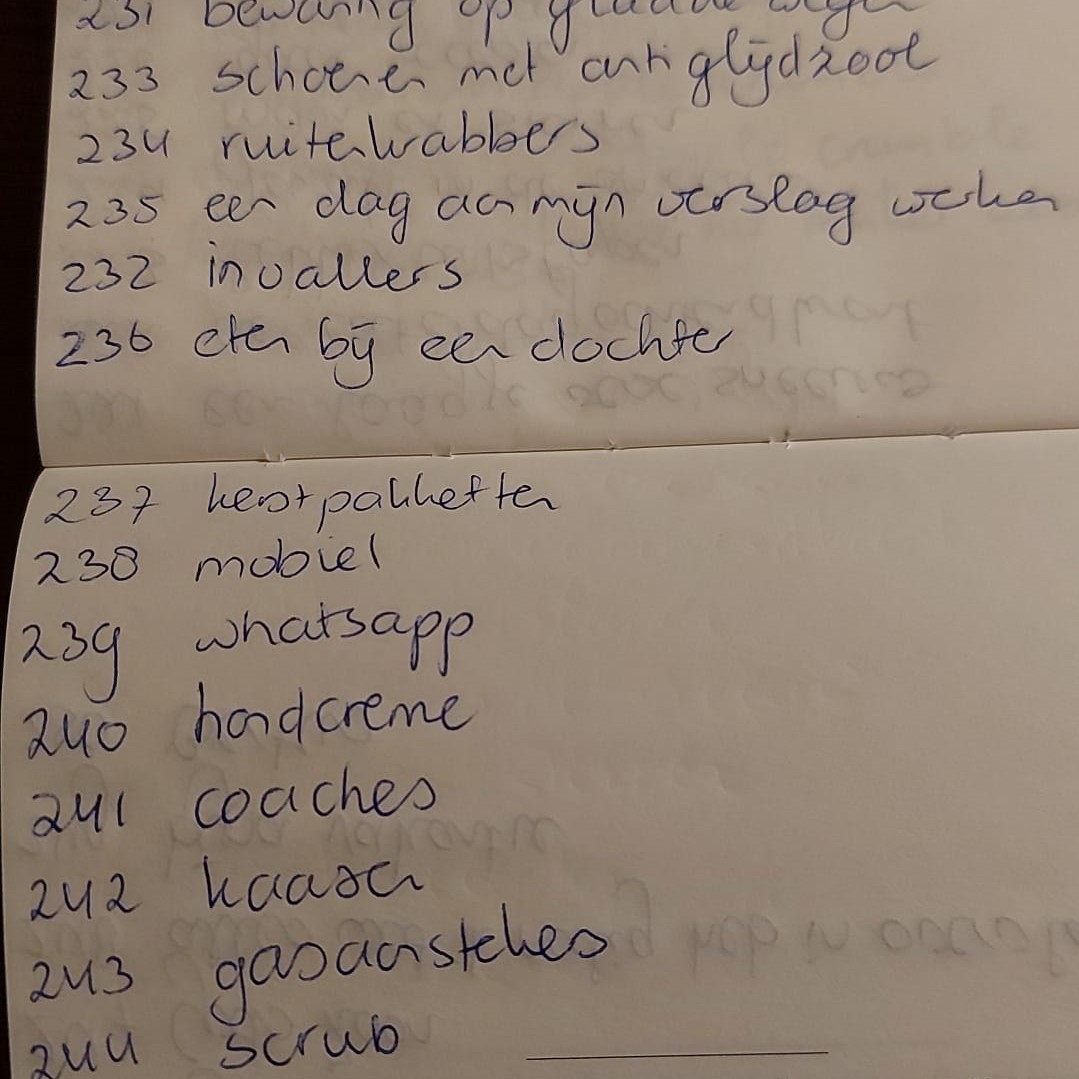 231 bewaring op gladde wegen
233 schoenen met antiglijdzool
234 ruitenkrabbers
235 een dag aan mijn verslag werken
232 invallers
236 eten bij een dochter
237 kerstpakketten
238 mobiel
239 whatsapp
240 handcreme
241 coaches
242 kaasen
243 gasaanstekers
244 scrub